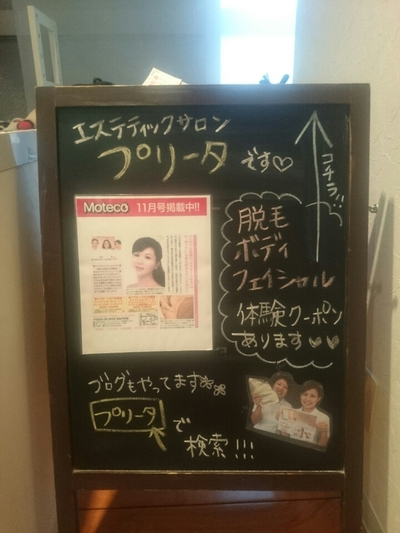 エステティックサロン
プリータです♡
コチラ!!
Moteco 11月号掲載中!!
脱毛
ボディ
フェイシャル
体験クーポン
あります♥♥
ブログもやってます
プリータで
検索!!!